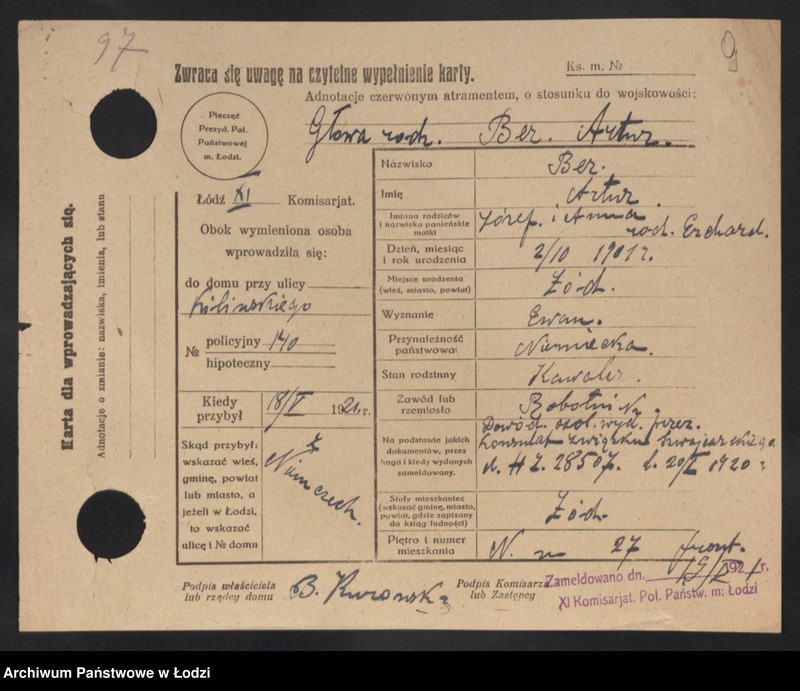 97
9
Zwraca się uwagę na czytelne wypełnienie karty.
Ks. m. №
Adnotacje czerwonym atramentem, o stosunku do wojskowości:
Głowa rodz. Ber. Artur.
Pieczęć
Prezyd. Pol.
Państwowej
m. Łodzi.
Łódź XI Komisarjat.
Obok wymieniona osoba
wprowadziła się:
do domu przy ulicy
Kilinskiego
№ policyjny 140
hipoteczny
Kiedy przybył 18/V 1921 r.
Skąd przybył:
wskazać wieś,
gminę, powiat
lub miasto, a
jeżeli w Łodzi,
to wskazać
ulicę i № domu
z
Niemczech.
Nazwisko Ber.
Imię Artur
Imiona rodziców
i nazwisko panieńskie
matki
Józef. i Anna
rod. Erchard.
Dzień, miesiąc
i rok urodzenia
2/10 1901 r.
Miejsce urodzenia
(wieś, miasto, powiat)
Łódz.
Wyznanie Ewan.
Przynależność
państwowa
Niemiecka.
Stan rodzinny Kawaler.
Zawód lub
rzemiosło
Robotnik.
Na podstawie jakich
dokumentów, przez
kogo i kiedy wydanych
zameldowany.
Dowód. osob. wyd. przez.
Konsulat związku szwajcarskiego.
N. H Z. 28507.
Stały mieszkaniec
(wskazać gminę, miasto,
powiat, gdzie zapisany
do ksiąg ludności)
Łódz.
Piętro i numer
mieszkania
27 front.
Podpis właściciela
lub rządcy domu
B. Kurowska
Podpis Komisarza
lub Zastępcy
Zameldowano dn. 19/V 1921 r.
XI Komisarjat. Pol. Państw. m: Łodzi
Karta dla wprowadzających się.
Adnotacje o zmianie: nazwiska, imienia, lub stanu
Archiwum Państwowe w Łodzi